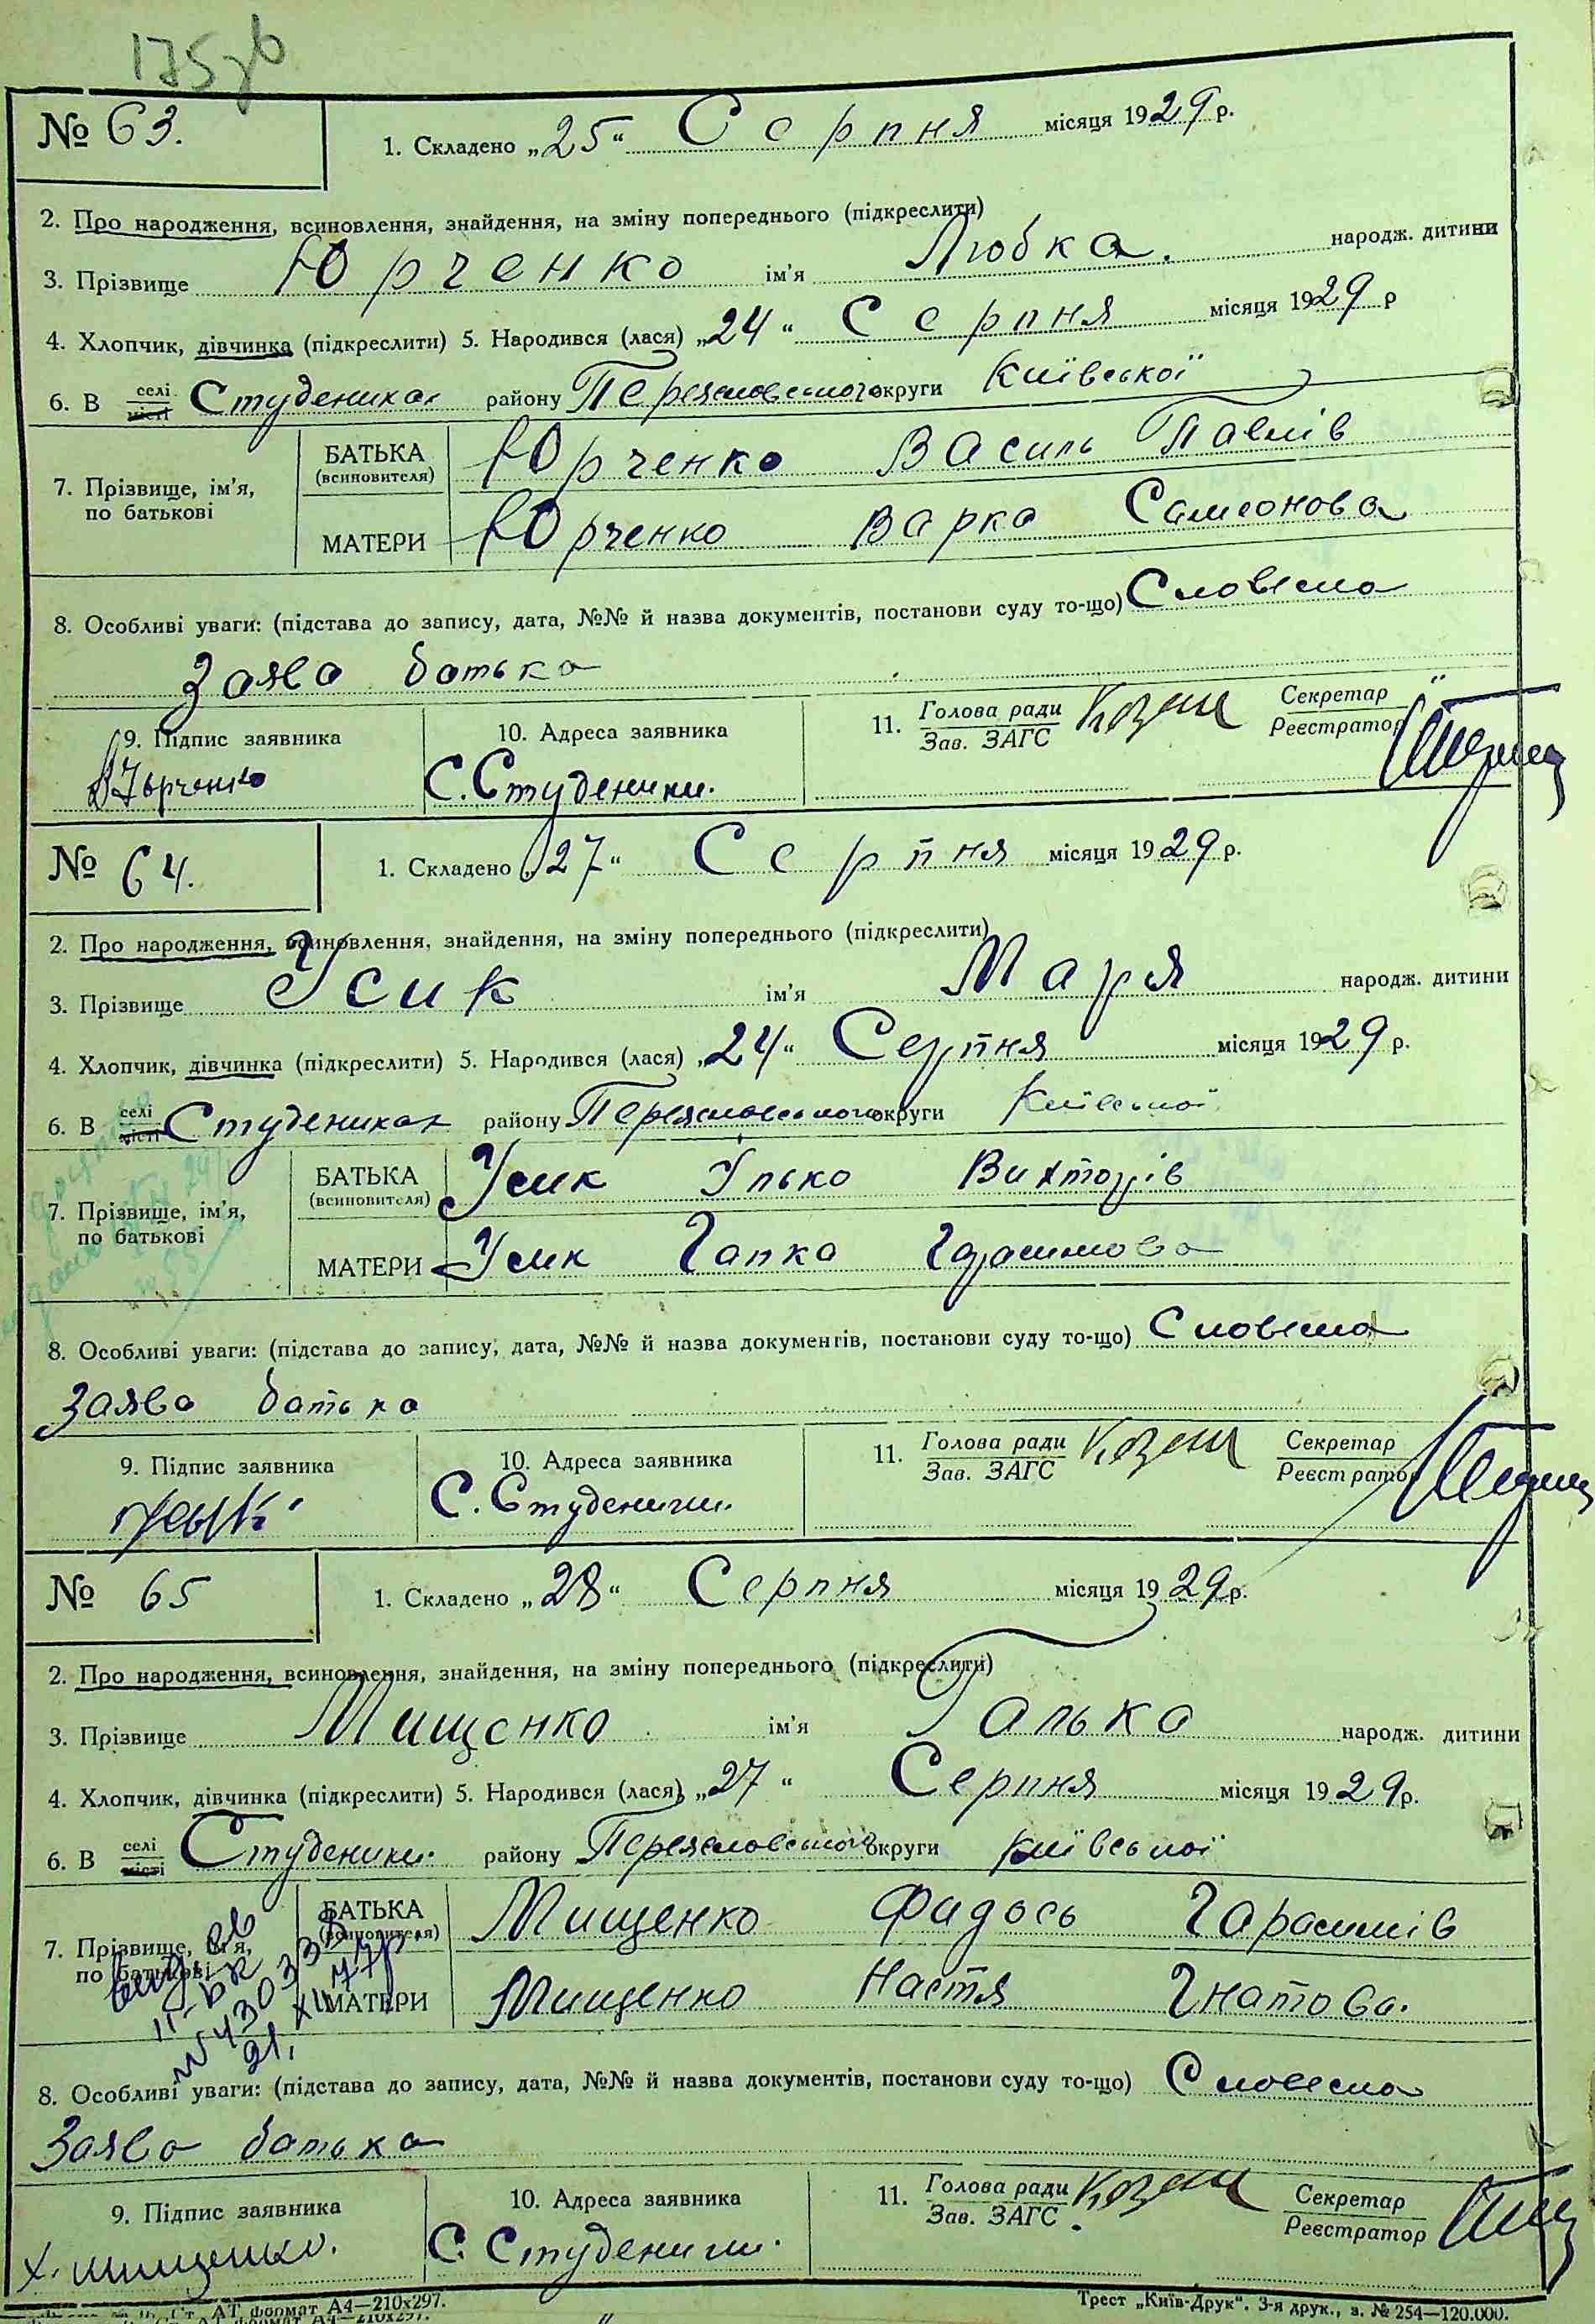 175зв
№ 63.
1. Складено „25“ Серпня місяця 1929 р.
2. Про народження, всиновлення, знайдення, на зміну попереднього (підкреслити)
3. Прізвище Юрченко ім'я Любка. народж. дитини
4. Хлопчик, дівчинка (підкреслити) 5. Народився (лася) „24“ Серпня місяця 1929 р
6. В селі місті Студениках району Переяславського округи Київської
БАТЬКА Юрченко Василь Павлів
(всиновителя)
7. Прізвище, ім'я,
по батькові
МАТЕРИ Юрченко Варка Самсонова
8. Особливі уваги: (підстава до запису, дата, №№ й назва документів, постанови суду то-що) Словесна
Заява батька
9. Підпис заявника 10. Адреса заявника 11. Голова ради Зав. ЗАГС Секретар Реєстратор
Юрченко С. Студеники.
№ 64.
1. Складено „27“ Серпня місяця 1929 р.
2. Про народження, всиновлення, знайдення, на зміну попереднього (підкреслити)
3. Прізвище Усик ім'я Маря народж. дитини
4. Хлопчик, дівчинка (підкреслити) 5. Народився (лася) „24“ Серпня місяця 1929 р.
6. В селі місті Студениках району Переяславського округи Київської
БАТЬКА Усик Ілько Вихторів
(всиновителя)
7. Прізвище, ім'я,
по батькові
МАТЕРИ Усик Гапка Гарасимова
8. Особливі уваги: (підстава до запису, дата, №№ й назва документів, постанови суду то-що) Словесна
Заява батька
9. Підпис заявника 10. Адреса заявника 11. Голова ради Зав. ЗАГС Секретар Реєстратор
С. Студеники.
№ 65
1. Складено „28“ Серпня місяця 1929 р.
2. Про народження, всиновлення, знайдення, на зміну попереднього (підкреслити)
3. Прізвище Мищенко ім'я Галька народж. дитини
4. Хлопчик, дівчинка (підкреслити) 5. Народився (лася) „27“ Серпня місяця 1929 р.
6. В селі місті Студеники. району Переяславського округи Київської
БАТЬКА Мищенко Фадось Гарасимів
(всиновителя)
7. Прізвище, ім'я,
по батькові
МАТЕРИ Мищенко Настя Гнатова.
8. Особливі уваги: (підстава до запису, дата, №№ й назва документів, постанови суду то-що) Словесна
Заява батька
9. Підпис заявника 10. Адреса заявника 11. Голова ради Зав. ЗАГС Секретар Реєстратор
Х. Мищенко. С. Студеники.
Ст. АТ формат А4—210х297.
Трест „Київ-Друк“. 3-я друк., з. № 254—120.000.